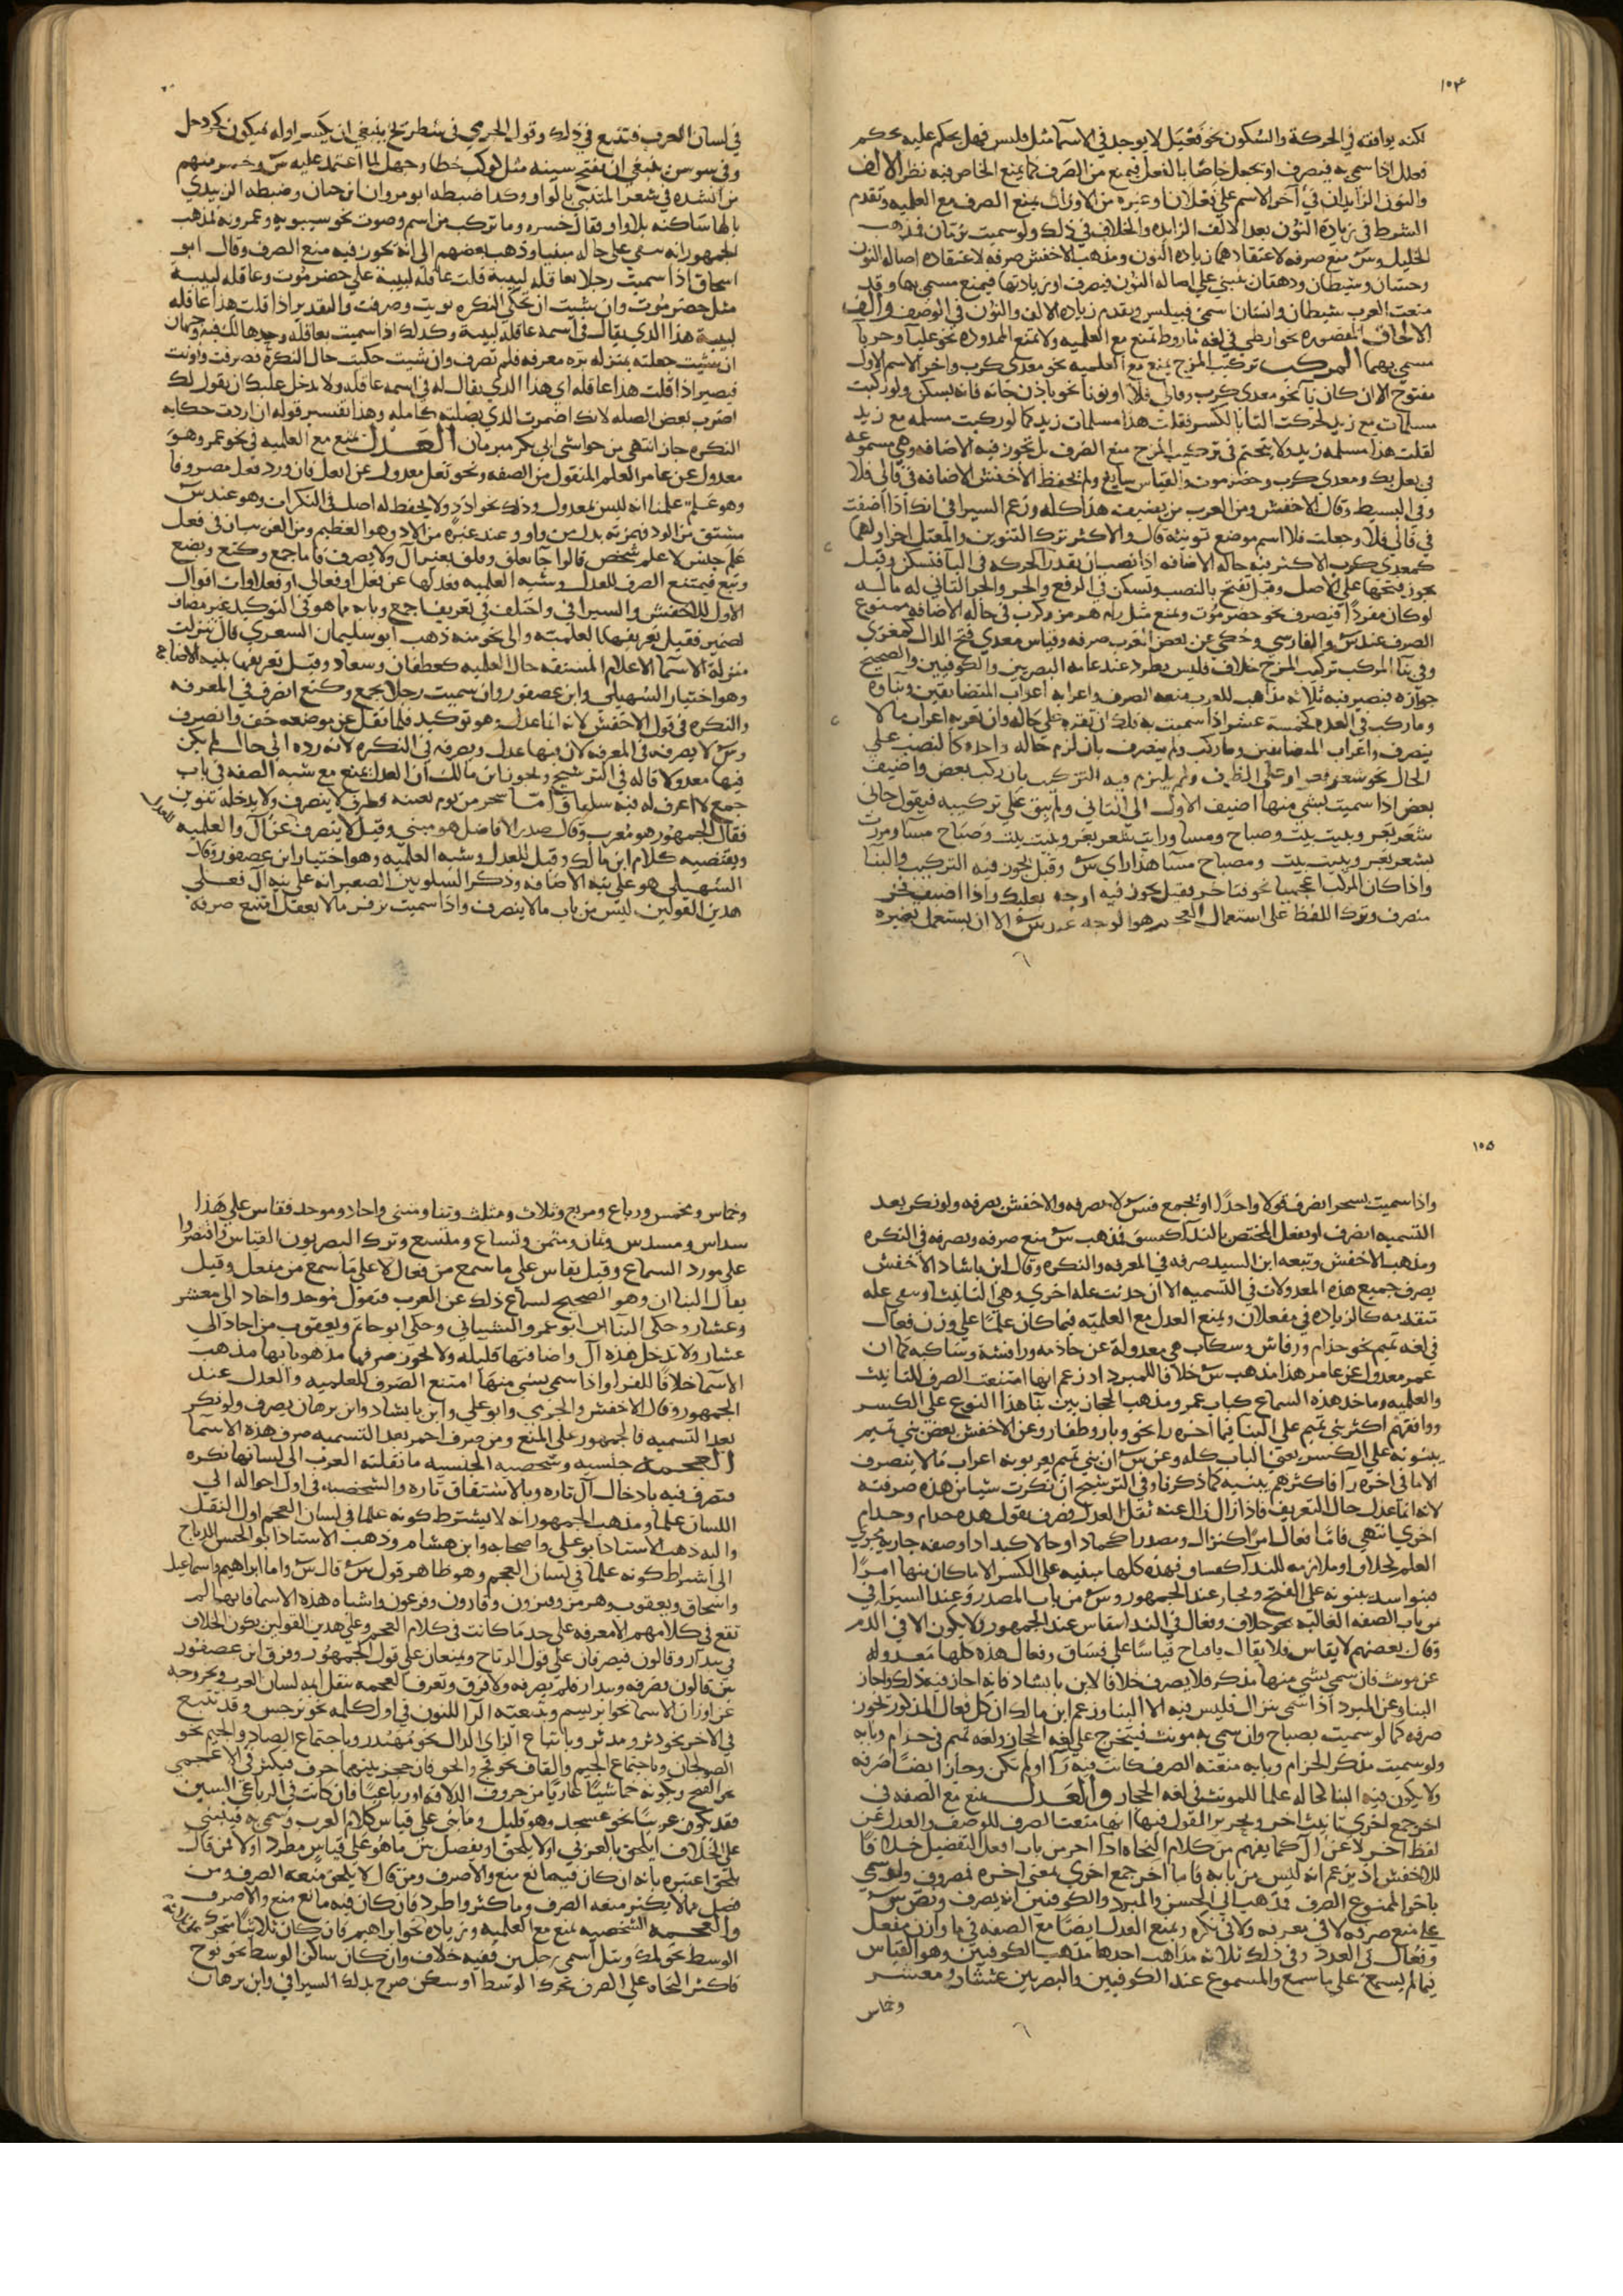 ١٥٤
لكنه يوافقه في الحركة والسكون نحو فعيل لا يوجد في الاسما مثل فليس فهل يحكم عليه بحكم
فعلل اذا سمي به فينصرف او يجعل خاصا بالفعل فيمنع من الصرف كما يمنع الخاص فيه نظر الالف
والنون الزايدان في آخر الاسم على فعلان او غيره من الاوزان يمنع الصرف مع العلميه وتقدم
الشرط في زيادة النون بعد الالف الزايده والخلاف في ذلك ولو سميت برمان فذهب
الخليل وس منع صرفه لاعتقادهما زياده النون ومذهب الاخفش صرفه لاعتقاده اصاله النون
وحسان وشيطان ودهقان يبني على اصاله النون فيصرف او زيادتها فيمنع مسمى بها وقد
منعت العرب شيطان وانسان اسمي قبيلتين وتقدم زياده الالف والنون في الوصف والف
الالحاق المقصوره نحو ارطى في لغه ماروط تمنع مع العلميه ولا تمنع الممدوده نحو علبآ وحربآ
مسمى بهما المركب تركيب المزج يمنع مع العلميه نحو معدي كرب واخر الاسم الاول
مفتوح الا ان كان يآ نحو معدي كرب وقالي قلا او نونا نحو باذنجانه فانه يسكن ولو ركبت
مسلمات مع زيد لحركت التا بالكسر فقلت هذا مسلمات زيد كما لو ركبت مسلمه مع زيد
لقلت هذا مسلمه زيد ولا يتحتم في تركيب المزج منع الصرف بل تجوز فيه الاضافه وهي مسموعه
في بعلبك ومعدي كرب وحضرموت والقياس سايغ ولم يحفظ الاخفش الاضافه في قالي قلا
وفي البسيط وقال الاخفش ومن العرب من يضيف هذا كله وزعم السيرافي انك اذا اضفت
في قالي قلا وجعلت قلا اسم موضع تنونه قال والاكثر ترك التنوين والمعتل اخر اولهما
كمعدي كرب الاكثر فيه حاله الاضافه اذا نصب ان تقدر الحركه في اليآ فتسكن وقيل
يجوز فتحها على الاصل وقيل تفتح بالنصب وتسكن في الرفع والجر والجز الثاني له ما له
لو كان مفردا فيصرف نحو حضرموت ويمنع مثل رام هرمز وكرب في حاله الاضافه ممنوع
الصرف عند س والفارسي وحكي عن بعض العرب صرفه وقياس معدي فتح الدال كمغزى
وفي بنآ المركب تركيب المزج خلاف فليس بمطرد عند عامه البصريين والكوفيين والصحيح
جوازه فيصير فيه ثلاثه مذاهب للعرب منعه الصرف واعرابه اعراب المتضايفين وبناوه
وما ركب في العدد كخمسة عشر اذا سميت به فلك ان تقره على حاله وان تعربه اعراب ما لا
ينصرف واعراب المتضايفين وما ركب ولم ينصرف بان لزم حاله واحده كالنصب على
الحال نحو شغر بغر او على الظرف ولم يلتزم فيه التركيب بان ركب بعض واضيف
بعض اذا سميت بشي منها اضيف الاول الى الثاني ولم يبق على تركيبه فيقول جاني
شغر بغر وبيت بيت وصباح ومسا ورايت شغر بغر وبيت بيت وصباح مسآ ومررت
بشغر بغر وبيت بيت وصباح مسآ هذا راي س وقيل يجوز فيه التركيب والبنآ
واذا كان المركب اعجميا نحو فقيل يجوز فيه اوجه بعلبك واذا اضيف
منصرف وترك اللفظ على استعمال العجم هو الوجه عند س الا ان يستعمل بغيره
في لسان العرب فتتبع في ذلك وقول الجرمي في شطرنج ينبغي ان يكسر اوله ليكون كجردحل
وفي سوسن ينبغي ان تفتح سينه مثل كوكب خطا وجهل لما اعتمد عليه س وخسر منهم
من انشده في شعر المتنبي بالواو وكذا ضبطه ابو مروان بن حيان وضبطه الزبيدي
بالها ساكنه بلا واو فقال خسره وما تركب من اسم وصوت نحو سيبويه وعمرويه فمذهب
الجمهور انه يبقى على حاله مبنيا وذهب بعضهم الى انه يجوز فيه منع الصرف وقال ابو
اسحاق اذا سميت رجلا بعاقله لبيبه قلت عاقلة لبيبة على حضرموت وعاقلة لبيبة
مثل حضرموت وان شيت ان تحكي النكره نويت وصرفت والتقدير اذا قلت هذا عاقله
لبيبة هذا الذي يقال في اسمه عاقلة لبيبة وكذلك اذا سميت بعاقله وحدها لك فيه وجهان
ان شيت جعلته بمنزله تره معرفه فلم تصرف وان شيت حكيت حال النكرة فصرفت ونونت
فيصير اذا قلت هذا عاقله اي هذا الذي يقال له في اسمه عاقله ولا يدخل عليك ان يقول لك
اضرب بعض الصله لانك اضمرت الذي بصلته كامله وهذا تفسير قوله ان اردت حكايه
النكره جاز انتهى من حواشي ابي بكر مبرمان العدل يمنع مع العلميه في نحو عمر وهو
معدول عن عامر العلم المنقول من الصفه ونحو ثعل معدول عن اثعل فان ورد فعل مصروفا
وهو علم علمنا انه ليس بمعدول وذلك نحو اددٍ ولا يحفظ له اصل في النكرات وهو عند س
مشتق من الود فهمزته بدل من واو وعند غيره من الاد وهو العظيم ومن العرب في فعل
علم جنس لا علم شخص قالوا جا بعلق وفلق بغير ال ولا يصرف فاما جمع وكتع وبصع
وبتع فيمتنع الصرف للعدل وشبه العلميه وعدلها عن فعل او فعالى او فعلاوات اقوال
الاول للاخفش والسيرافي واختلف في تعريف جمع وبابه ما هو في التوكيد غير مضاف
لضمير فقيل تعريفها بالعلميه والى نحو منه ذهب ابو سليمان السعدي قال تنزلت
منزلة الاسما الاعلام المستقه حال العلميه كغطفان وسعاد وقيل تعريفها بنيه الاضافه
وهو اختيار السهيلي وابن عصفور وان سميت رجلا بجمع وكتع انصرف في المعرفه
والنكره في قول الاخفش لانه انما عدل وهو توكيد فلما نقل عن موضعه خف وانصرف
وس لا يصرفه في المعرفه لانه فيها عدل ويصرفه في النكره لانه رده الى حال لم يكن
فيها معدولا قاله في الترشيح وتجويز ابن مالك ان العدل يمنع مع شبه الصفه في باب
جمع لا اعرف له فيه سلفا واما سحر من يوم بعينه وظرف لا ينصرف ولا يدخله تنوين
فقال الجمهور هو معرب وقال صدر الافاضل هو مبني وقيل لا ينصرف للعدل عن ال والعلميه
ويقتضيه كلام ابن مالك وقيل للعدل وشبه العلميه وهو اختيار ابن عصفور وقال
السهيلي هو على نيه الاضافه وذكر الشلوبين الصغير انه على نيه ال فعلى
هذين القولين ليس من باب ما لا ينصرف واذا سميت بزفر ما لا يعقل امتنع صرفه
١٥٥
واذا سميت بسحر انصرف قولا واحدًا او بجمع فس لا يصرفه والاخفش يصرفه ولو نكر بعد
التسميه انصرف او بفعل المختص بالندآ كفسق فمذهب س منع صرفه ويصرفه في النكره
ومذهب الاخفش وتبعه ابن السيد صرفه في المعرفه والنكره وقال ابن بابشاد الاخفش
يصرف جميع هذه المعدولات في التسميه الا ان حدثت عله اخرى وهي التانيث او تبقى عله
تتقدمه كالزياده في مفعلان ويمنع العدل مع العلميه فيما كان علمًا على وزن فعال
في لغه تميم نحو حذام ورقاش وسكاب هي معدولة عن حاذمه وراقشة وساكبه كما ان
عمر معدول عن عامر هذا مذهب س خلافا للمبرد اذ زعم انها امتنعت الصرف للتانيث
والعلميه وماخذ هذه السماع كباب عمر ومذهب الحجازيين بنآ هذا النوع على الكسر
ووافقهم اكثر بني تميم على البنا فيما اخره رآ نحو وبار وظفار وعن الاخفش بعض بني تميم
يبنونه على الكسر يعني الباب كله وعن س ان بني تميم يعربونه اعراب ما لا ينصرف
الا ما في اخره رآ فاكثرهم يبنيه كما ذكرنا وفي الترشيح ان نكرت شيا من هذه صرفته
لانه انما عدل حال التعريف فاذا زال زال عنه ثقل العدل فصرف يقول هذه حذام وحذام
اخرى انتهى فاما فعال امرا كنزال ومصدرا كحماد او حالا كبداد او صفه جاريه مجرى
العلم كحلاق او ملازمه للندآ كفساق فهذه كلها مبنيه على الكسر الا ما كان منها امرًا
فبنو اسد يبنونه على الفتح وفجار عند الجمهور وس من باب المصدر وعند السيرافي
من باب الصفه الغالبه نحو حلاق وفعال في الندا ينقاس عند الجمهور ولا يكون الا في الذم
وقال بعضهم لا يقاس فلا يقال يا قباح قياسًا على فساق وفعال هذه كلها معدوله
عن مونث فان سمي بشي منها مذكر فلا يصرف خلافا لابن بابشاد فانه اجاز فيه ذلك واجاز
البنا وعن المبرد اذا سمي بنزال فليس فيه الا البنا وزعم ابن مالك ان كل فعال المذكور تجوز
صرفه كما لو سميت بصباح وان سمي به مونث فيتخرج على لغه الحجاز ولغه تميم في حذام وبابه
ولو سميت مذكر بحذام وبابه منعته الصرف كانت فيه رآ او لم تكن وجاز ايضًا صرفه
ولا يكون فيه البنا كحاله علما للمونث في لغه الحجاز والعدل يمنع مع الصفه في
اخر جمع اخرى تانيث اخر وتحرير القول فيها انها منعت الصرف للوصف والعدل عن
لفظ اخر لا عن ال كما يفهم من كلام النحاه اذ اخر من باب افعل التفضيل خلافًا
للاخفش اذ زعم انه ليس من بابه فاما اخر جمع اخرى بمعنى اخره فمصروف ولو سمي
باخر الممنوع الصرف فذهب ابي الحسن والمبرد والكوفيين انه يصرف ونص س
على منع صرفه لا في معرفه ولا في نكره ويمنع العدل ايضًا مع الصفه في ما وازن مفعل
وفعال في العدد وفي ذلك ثلاثه مذاهب احدها مذهب الكوفيين وهو القياس
فيما لم يسمع على ما سمع والمسموع عند الكوفيين والبصريين عشار ومعشر
وخماس
وخماس ومخمس ورباع ومربع وثلاث ومثلث وثنا ومثنى واحاد وموحد فقاس على هذا
سداس ومسدس وثمان ومثمن وتساع ومتسع وترك البصريون القياس واقتصروا
على مورد السماع وقيل يقاس على ما سمع من فعال لا على ما سمع من مفعل وقيل
يقال البناان وهو الصحيح لسماع ذلك عن العرب فتقول موحد واحاد الى معشر
وعشار وحكى البنآين ابو عمرو الشيباني وحكى ابو حاتم ويعقوب من احاد الى
عشار ولا تدخل هذه ال واضافتها قليله ولا تجوز صرفها مذهوبا بها مذهب
الاسما خلافًا للفرا واذا سمي بشي منها امتنع الصرف للعلميه والعدل عند
الجمهور وقال الاخفش والجرمي وابو علي وابن بابشاد وابن برهان يصرف ولو نكر
بعد التسميه فالجمهور على المنع ومن صرف احمر بعد التسميه صرف هذه الاسما
العجمه جنسيه وشخصيه الجنسيه ما نقلته العرب الى لسانها نكره
فتصرف فيه بادخال ال تاره وبالاشتقاق تاره والشخصيه في اول احواله الى
اللسان علما ومذهب الجمهور انه لا يشترط كونه علما في لسان العجم اول النقل
واليه ذهب الاستاذ ابو علي واصحابه وابن هشام وذهب الاستاذ ابو الحسن الدباج
الى اشتراط كونه علما في لسان العجم وهو ظاهر قول س قال س واما ابراهيم واسماعيل
واسحاق ويعقوب وهرمز وفيروز وقارون وفرعون واشباه هذه الاسما فانها لم
تقع في كلامهم الا معرفه على حد ما كانت في كلام العجم وعلى هذين القولين يكون الخلاف
في بندار وقالون فيصرفان على قول الدباج ويمنعان على قول الجمهور وفرق ابن عصفور
بين قالون فصرفه وبندار فلم يصرفه ولا فرق وتعرف العجمه بنقل ايمه لسان العرب وخروجه
عن اوزان الاسما نحو ابريسم وبتبعيته الرآ للنون في اول كلمه نحو نرجس وقد تتبع
في الاخر نحو دنر ومدنر وباتباع الزاي الدال نحو مهندز وباجتماع الصاد والجيم نحو
الصولجان وباجتماع الجيم والقاف نحو قج والجق فان حجز بينهما حرف فيكثر في الاعجمي
نحو القبج وبكونه خماسيًا عاريًا من حروف الذلاقه او رباعيًا فان كانت في الرباعي السين
فقد يكون عربيًا نحو عسجد وهو قليل وما بني على قياس كلام العرب وسمي به فينبني
على الخلاف ايلحق بالعربي او لا يلحق او يفصل بين ما هو على قياس مطرد اولا فمن قال
يلحق اعتبره بانه ان كان فيه مانع منع والا صرف ومن قال لا يلحق منعه الصرف ومن
فصل فما لا يكثر منعه الصرف وما كثر واطرد فان كان فيه مانع منع والا صرف
والعجمه الشخصيه تمنع مع العلميه وزياده نحو ابراهيم فان كان ثلاثيًا متحرك
الوسط نحو لمك وشتر اسمي رجلين ففيه خلاف وان كان ساكن الوسط نحو نوح
فاكثر النحاه على الصرف تحرك الوسط او سكن صرح بذلك السيرافي وابن برهان